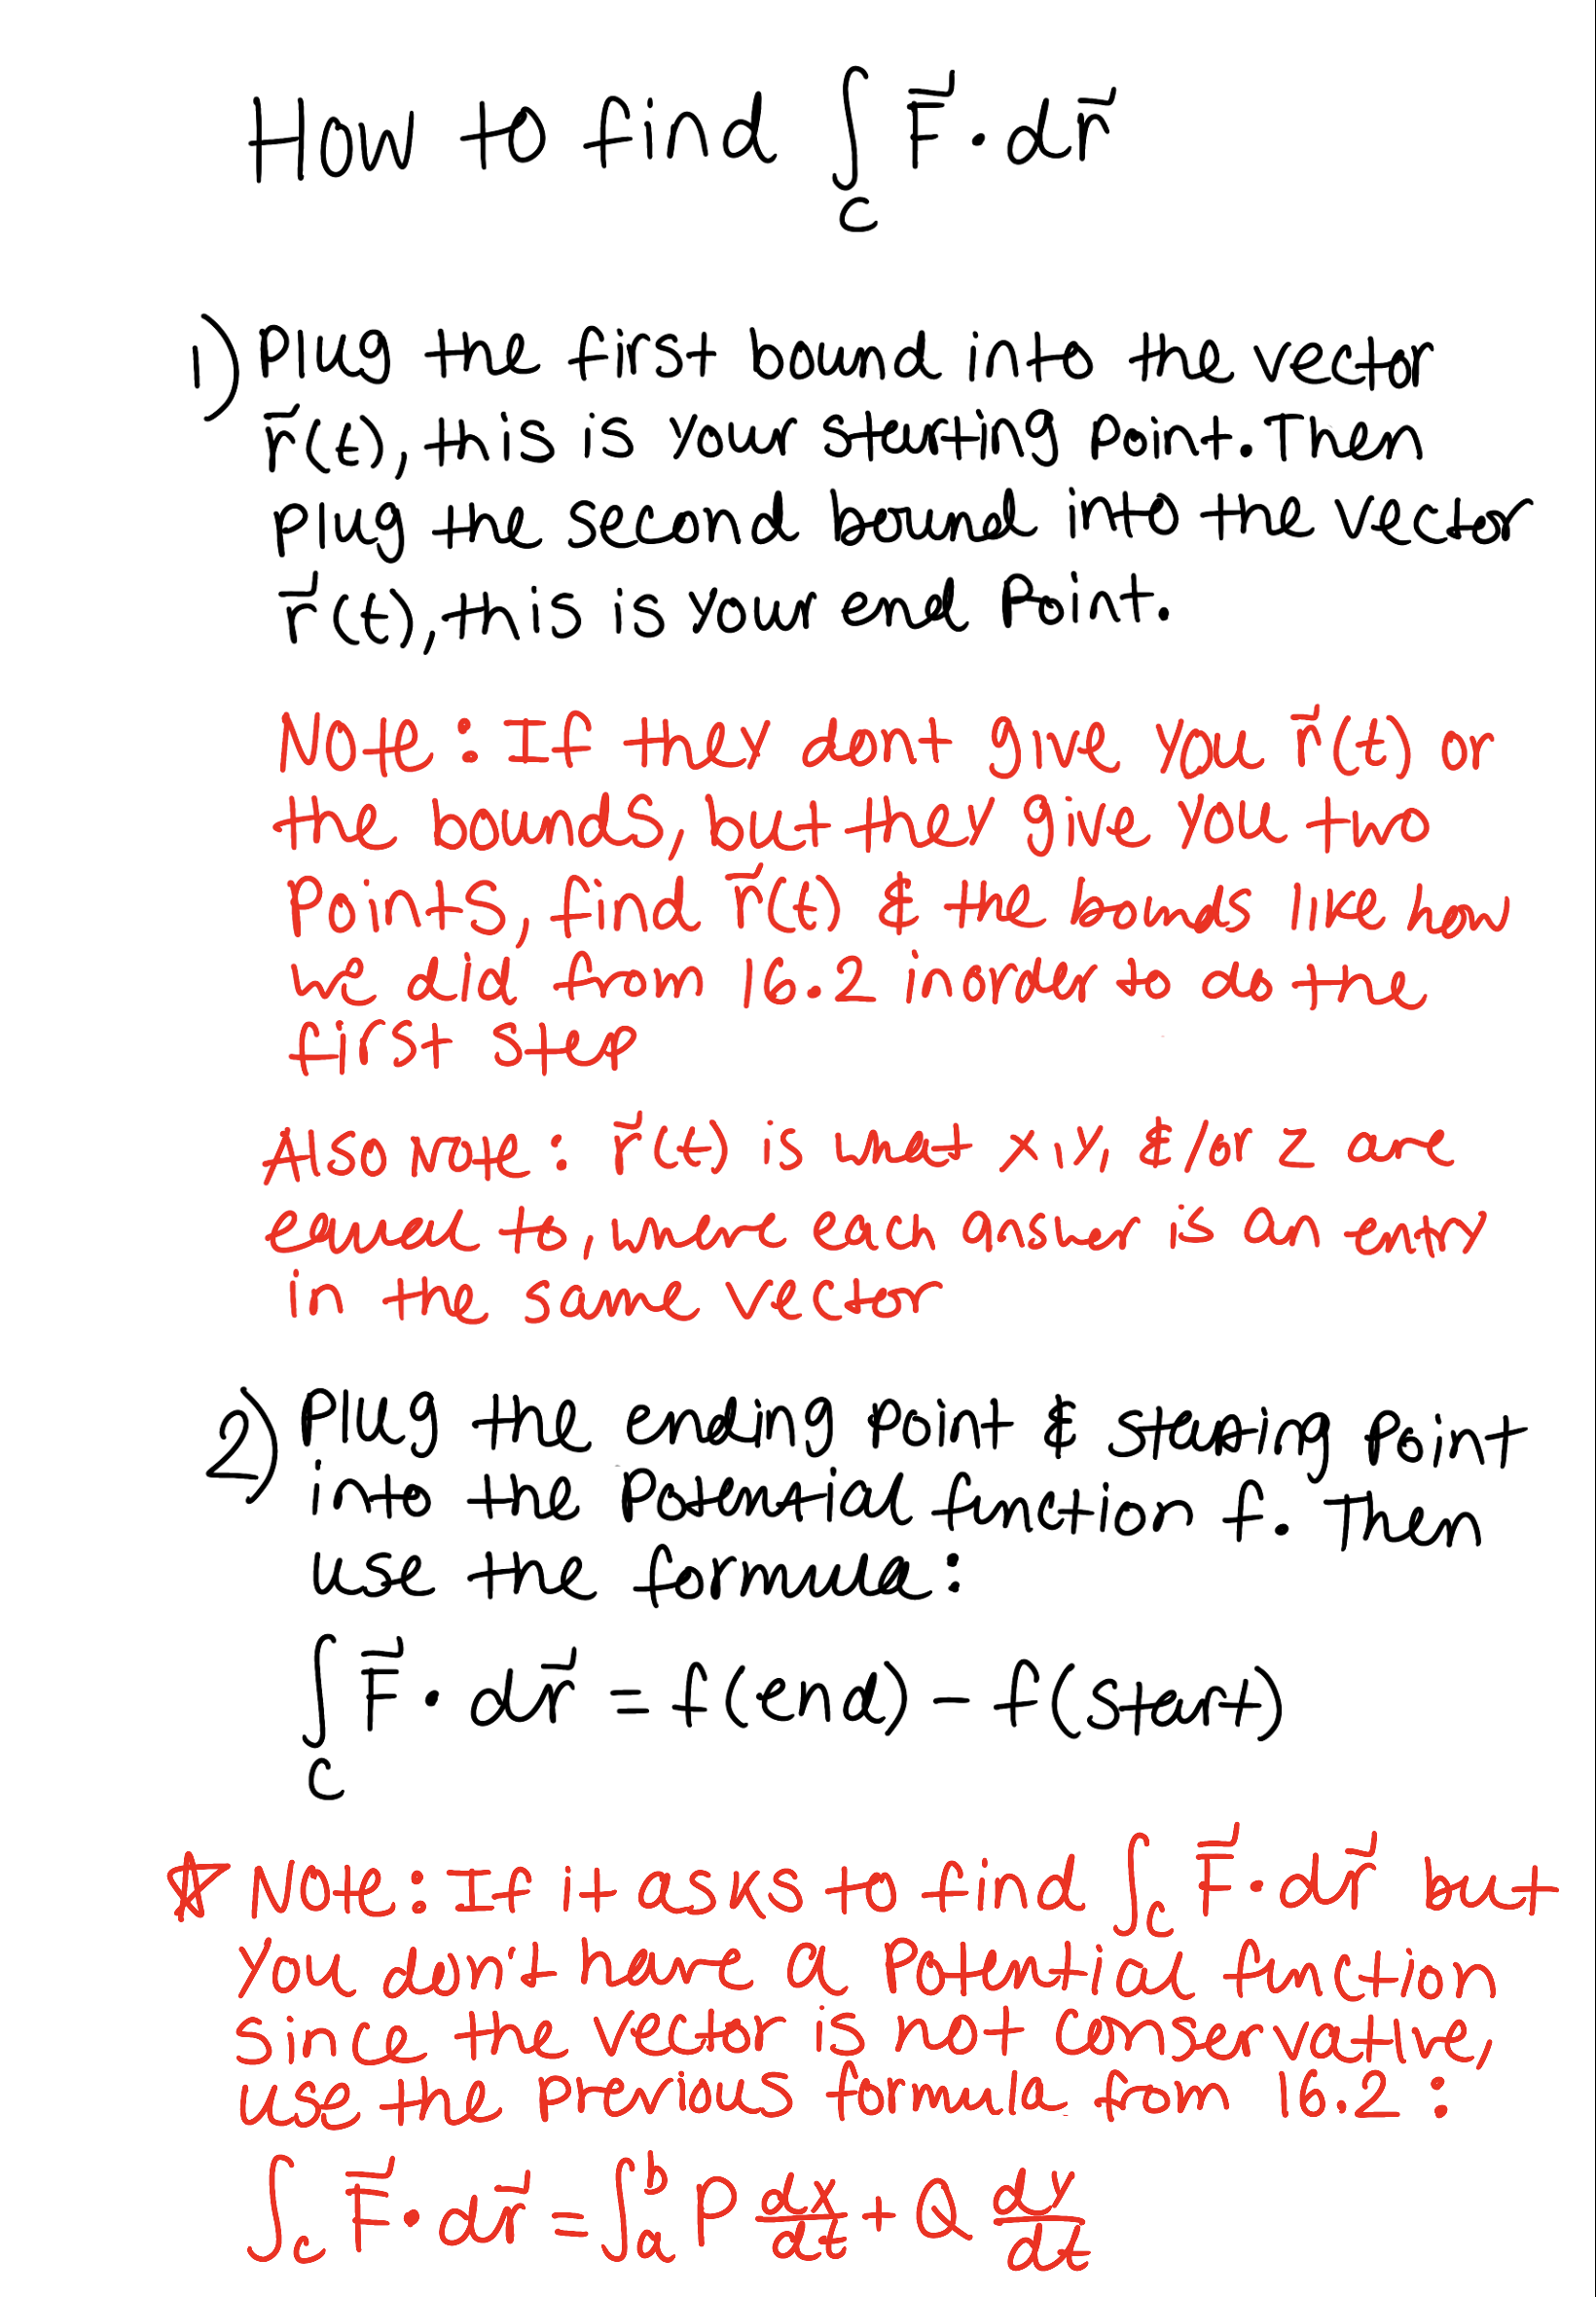 How to find ∫_C F⃗ · dr⃗
1) Plug the first bound into the vector
r⃗(t), this is your starting point. Then
plug the second bound into the vector
r⃗(t), this is your end point.
Note: If they dont give you r⃗(t) or
the bounds, but they give you two
points, find r⃗(t) & the bounds like how
we did from 16.2 inorder to do the
first step
Also note: r⃗(t) is what x, y, &/or z are
equal to, where each answer is an entry
in the same vector
2) Plug the ending point & starting point
into the potential function f. Then
use the formula:
∫_C F⃗ · dr⃗ = f(end) - f(start)
☆ Note: If it asks to find ∫_C F⃗ · dr⃗ but
you don't have a potential function
since the vector is not conservative,
use the previous formula from 16.2:
∫_C F⃗ · dr⃗ = ∫_a^b P dx/dt + Q dy/dt